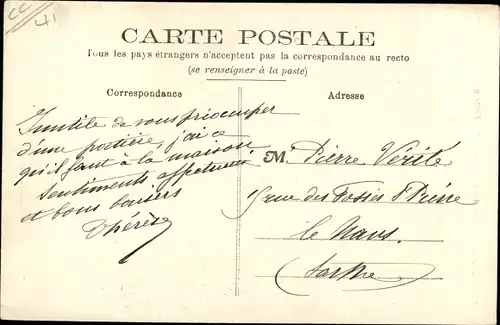 CC
41
CARTE POSTALE
Tous les pays étrangers n'acceptent pas la correspondance au recto
(se renseigner à la poste)
Correspondance
Adresse
Inutile de vous préocuper
d'une portière, j'ai ce
qu'il faut à la maison
Sentiments affectueux
et bons baisers
Thérèse
M. Pierre Vérité
rue des Fossés St Pierre
le Mans.
Sarthe